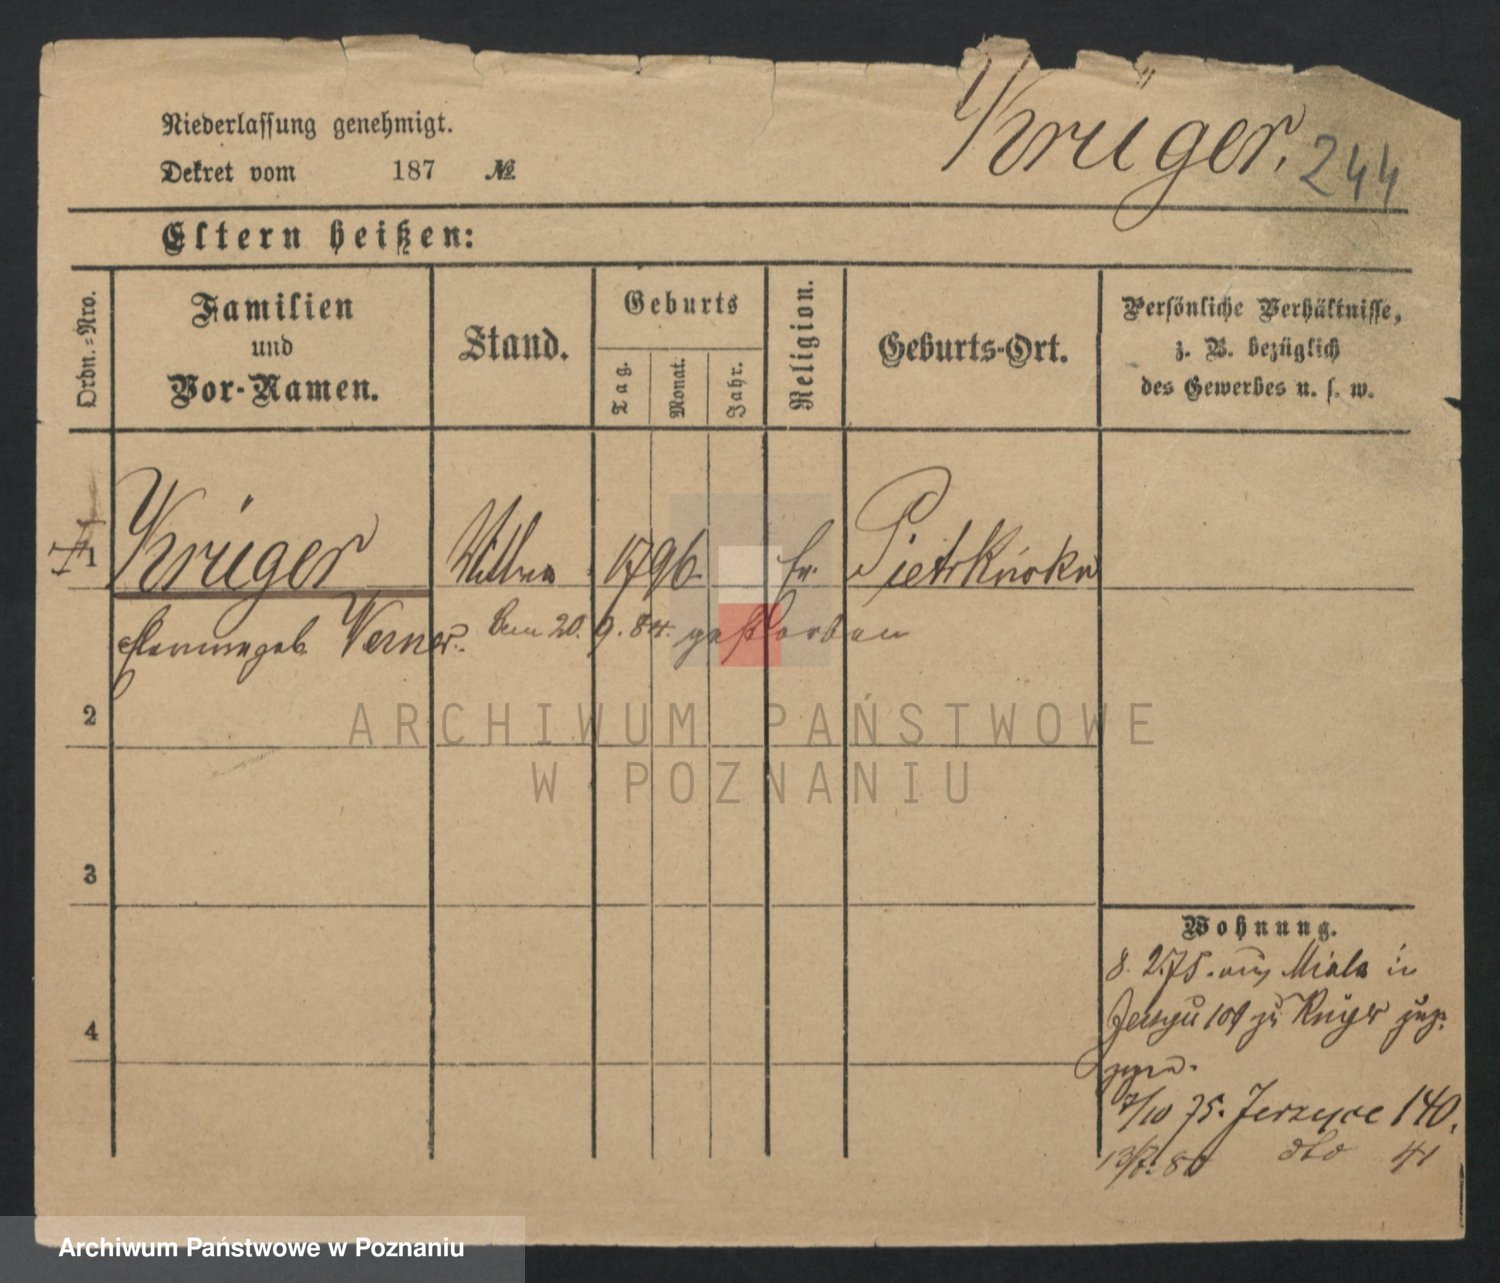 Krüger. 244
Niederlassung genehmigt.
Dekret vom 187 №
Eltern heißen:
Ordn.-Nro.
Familien
und
Vor-Namen.
Stand.
Geburts
Tag.
Monat.
Jahr.
Religion.
Geburts-Ort.
Persönliche Verhältnisse,
z. B. bezüglich
des Gewerbes u. s. w.
1 Krüger Wittwe 1796. ev.
geb. Werner. den 20. 9. 84. gestorben
2
3
4
Wohnung.
8. 2. 75. aus Miala in
zu Krüger
7/10 75. Jerzyce 140.
dto 41
ARCHIWUM PAŃSTWOWE
W POZNANIU
Archiwum Państwowe w Poznaniu